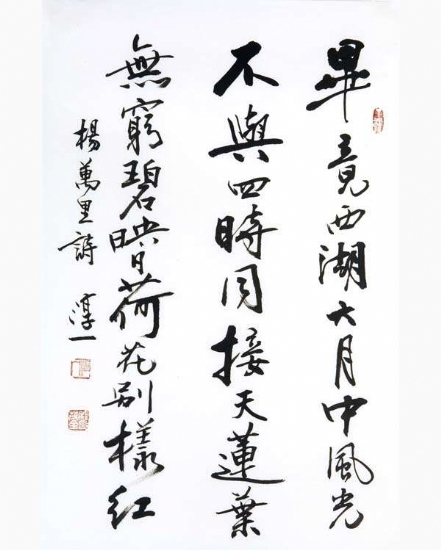 畢竟西湖六月中風光
不與四時同接天蓮葉
無窮碧映日荷花別樣紅
楊萬里詩 淳一